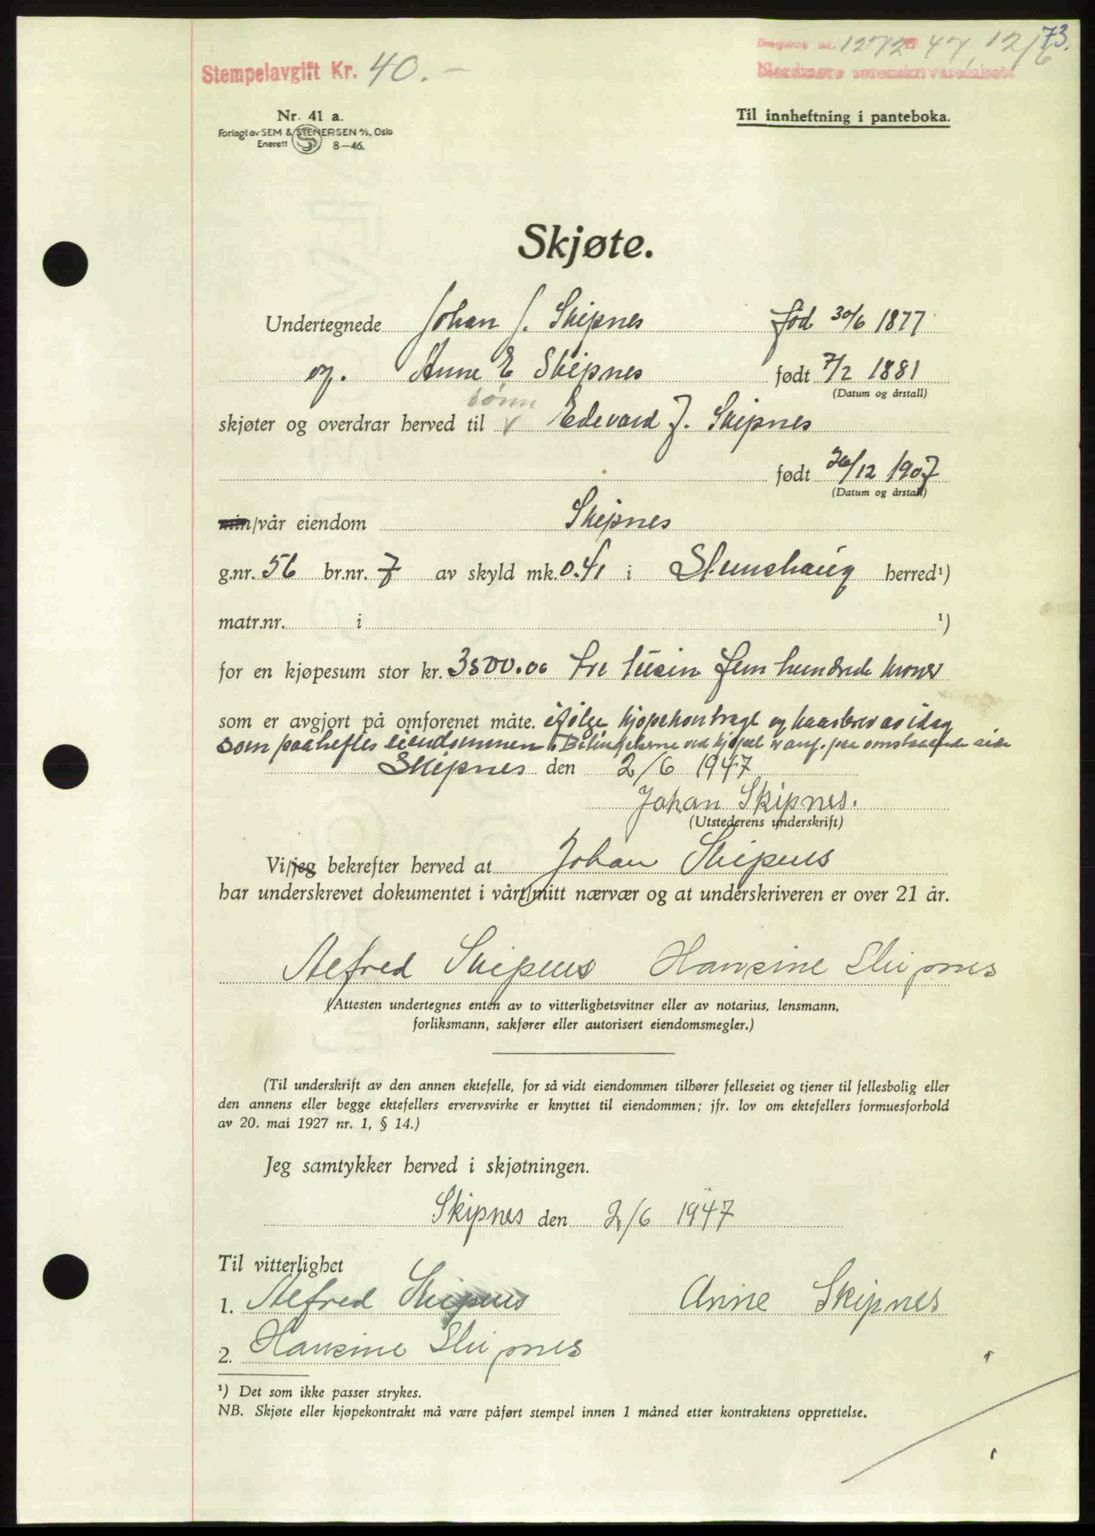 73.
Stempelavgift Kr. 40.–
Dagbok nr. 1272 47, 12/6
Nordmøre sorenskriverembete
Nr. 41 a.
Forlagt av SEM & STENERSEN A/S, Oslo
Enerett S 8—46.
Til innheftning i panteboka.
Skjøte.
Undertegnede Johan J. Skipnes født 30/6 1877
og. Anne E Skipnes født 7/2 1881
(Datum og årstall)
sønn
skjøter og overdrar herved til V Edevard J. Skipnes
født 26/12 1907
(Datum og årstall)
min/vår eiendom Skipnes
g.nr. 56 br.nr. 7 av skyld mk. 0.41 i Stemshaug herred¹)
matr.nr. i ¹)
for en kjøpesum stor kr. 3500.00 tre tusin fem hundrede kroner
som er avgjort på omforenet måte. ifølge kjøpekontragt og kaarbrev av idag
som paaheftes eiendommen. Betingelserne ved kjøpet er anf. paa omstaaende side
Skipnes den 2/6 1947
Johan Skipnes.
(Utstederens underskrift)
Vi/jeg bekrefter herved at Johan Skipnes
har underskrevet dokumentet i vårt/mitt nærvær og at underskriveren er over 21 år.
Alfred Skipnes Hansine Skipnes
(Attesten undertegnes enten av to vitterlighetsvitner eller av notarius, lensmann,
forliksmann, sakfører eller autorisert eiendomsmegler.)
(Til underskrift av den annen ektefelle, for så vidt eiendommen tilhører felleseiet og tjener til fellesbolig eller
den annens eller begge ektefellers ervervsvirke er knyttet til eiendommen; jfr. lov om ektefellers formuesforhold
av 20. mai 1927 nr. 1, § 14.)
Jeg samtykker herved i skjøtningen.
Skipnes den 2/6 1947
Til vitterlighet
1. Alfred Skipnes Anne Skipnes
2. Hansine Skipnes
¹) Det som ikke passer strykes.
NB. Skjøte eller kjøpekontrakt må være påført stempel innen 1 måned etter kontraktens opprettelse.